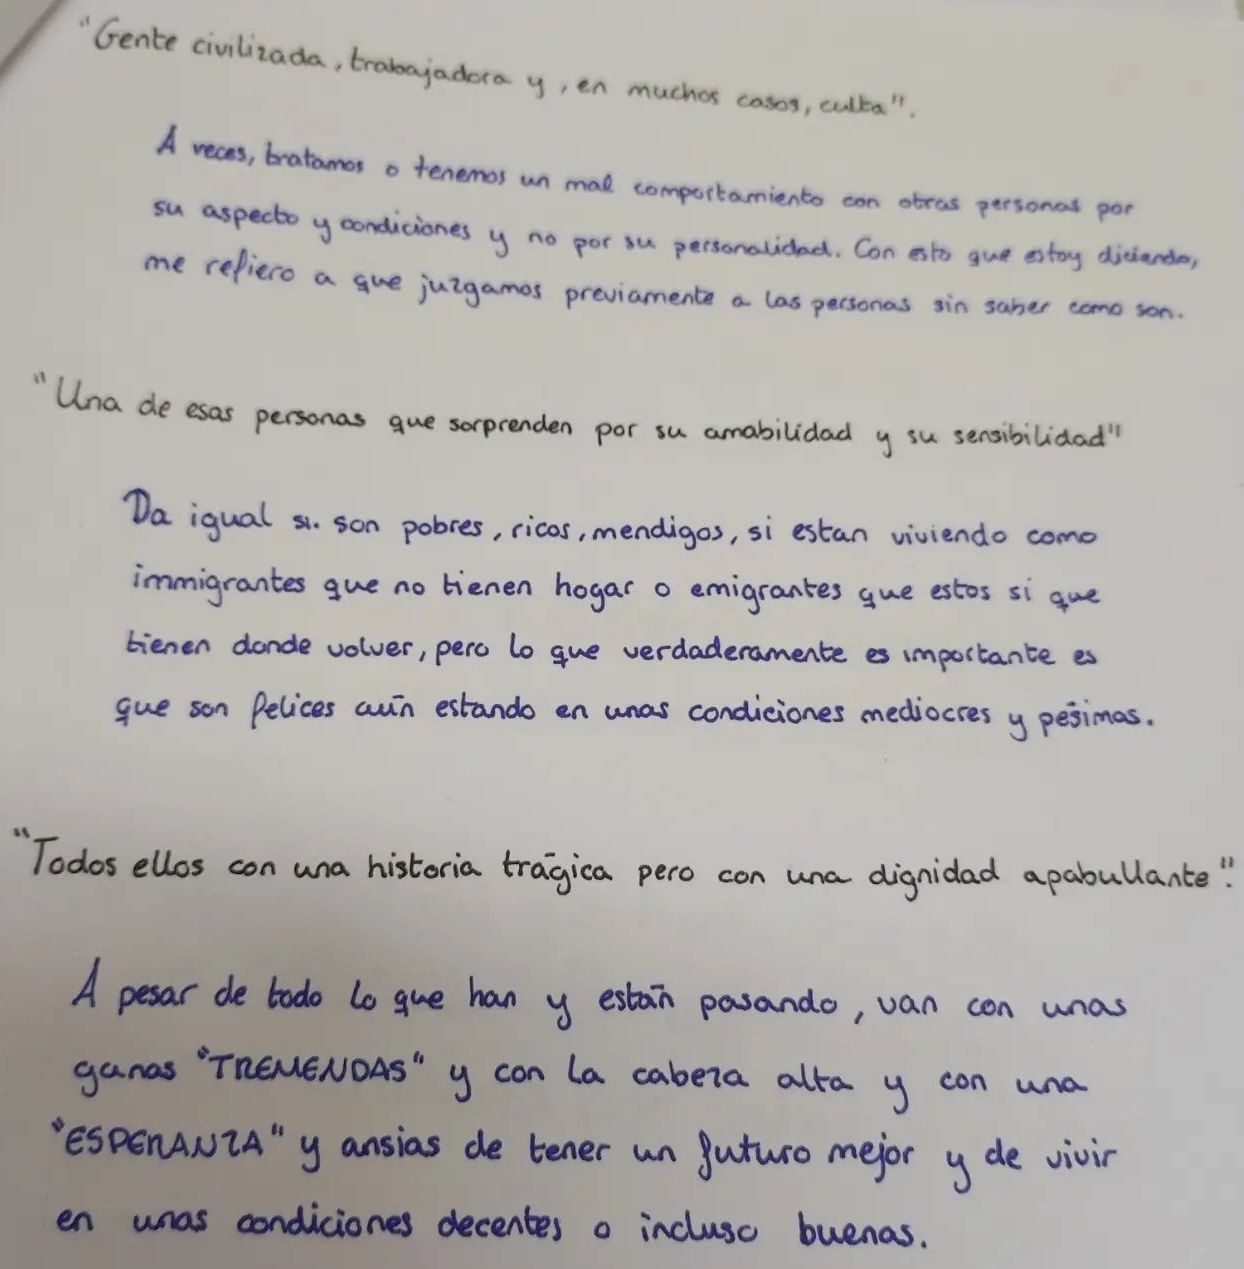 "Gente civilizada, trabajadora y, en muchos casos, culta".
A veces, tratamos o tenemos un mal comportamiento con otras personas por
su aspecto y condiciones y no por su personalidad. Con esto que estoy diciendo,
me refiero a que juzgamos previamente a las personas sin saber como son.
"Una de esas personas que sorprenden por su amabilidad y su sensibilidad"
Da igual si son pobres, ricos, mendigos, si estan viviendo como
immigrantes que no tienen hogar o emigrantes que estos si que
tienen donde volver, pero lo que verdaderamente es importante es
que son felices aún estando en unas condiciones mediocres y pésimas.
"Todos ellos con una historia trágica pero con una dignidad apabullante".
A pesar de todo lo que han y están pasando, van con unas
ganas "TREMENDAS" y con la cabeza alta y con una
"ESPERANZA" y ansias de tener un futuro mejor y de vivir
en unas condiciones decentes o incluso buenas.